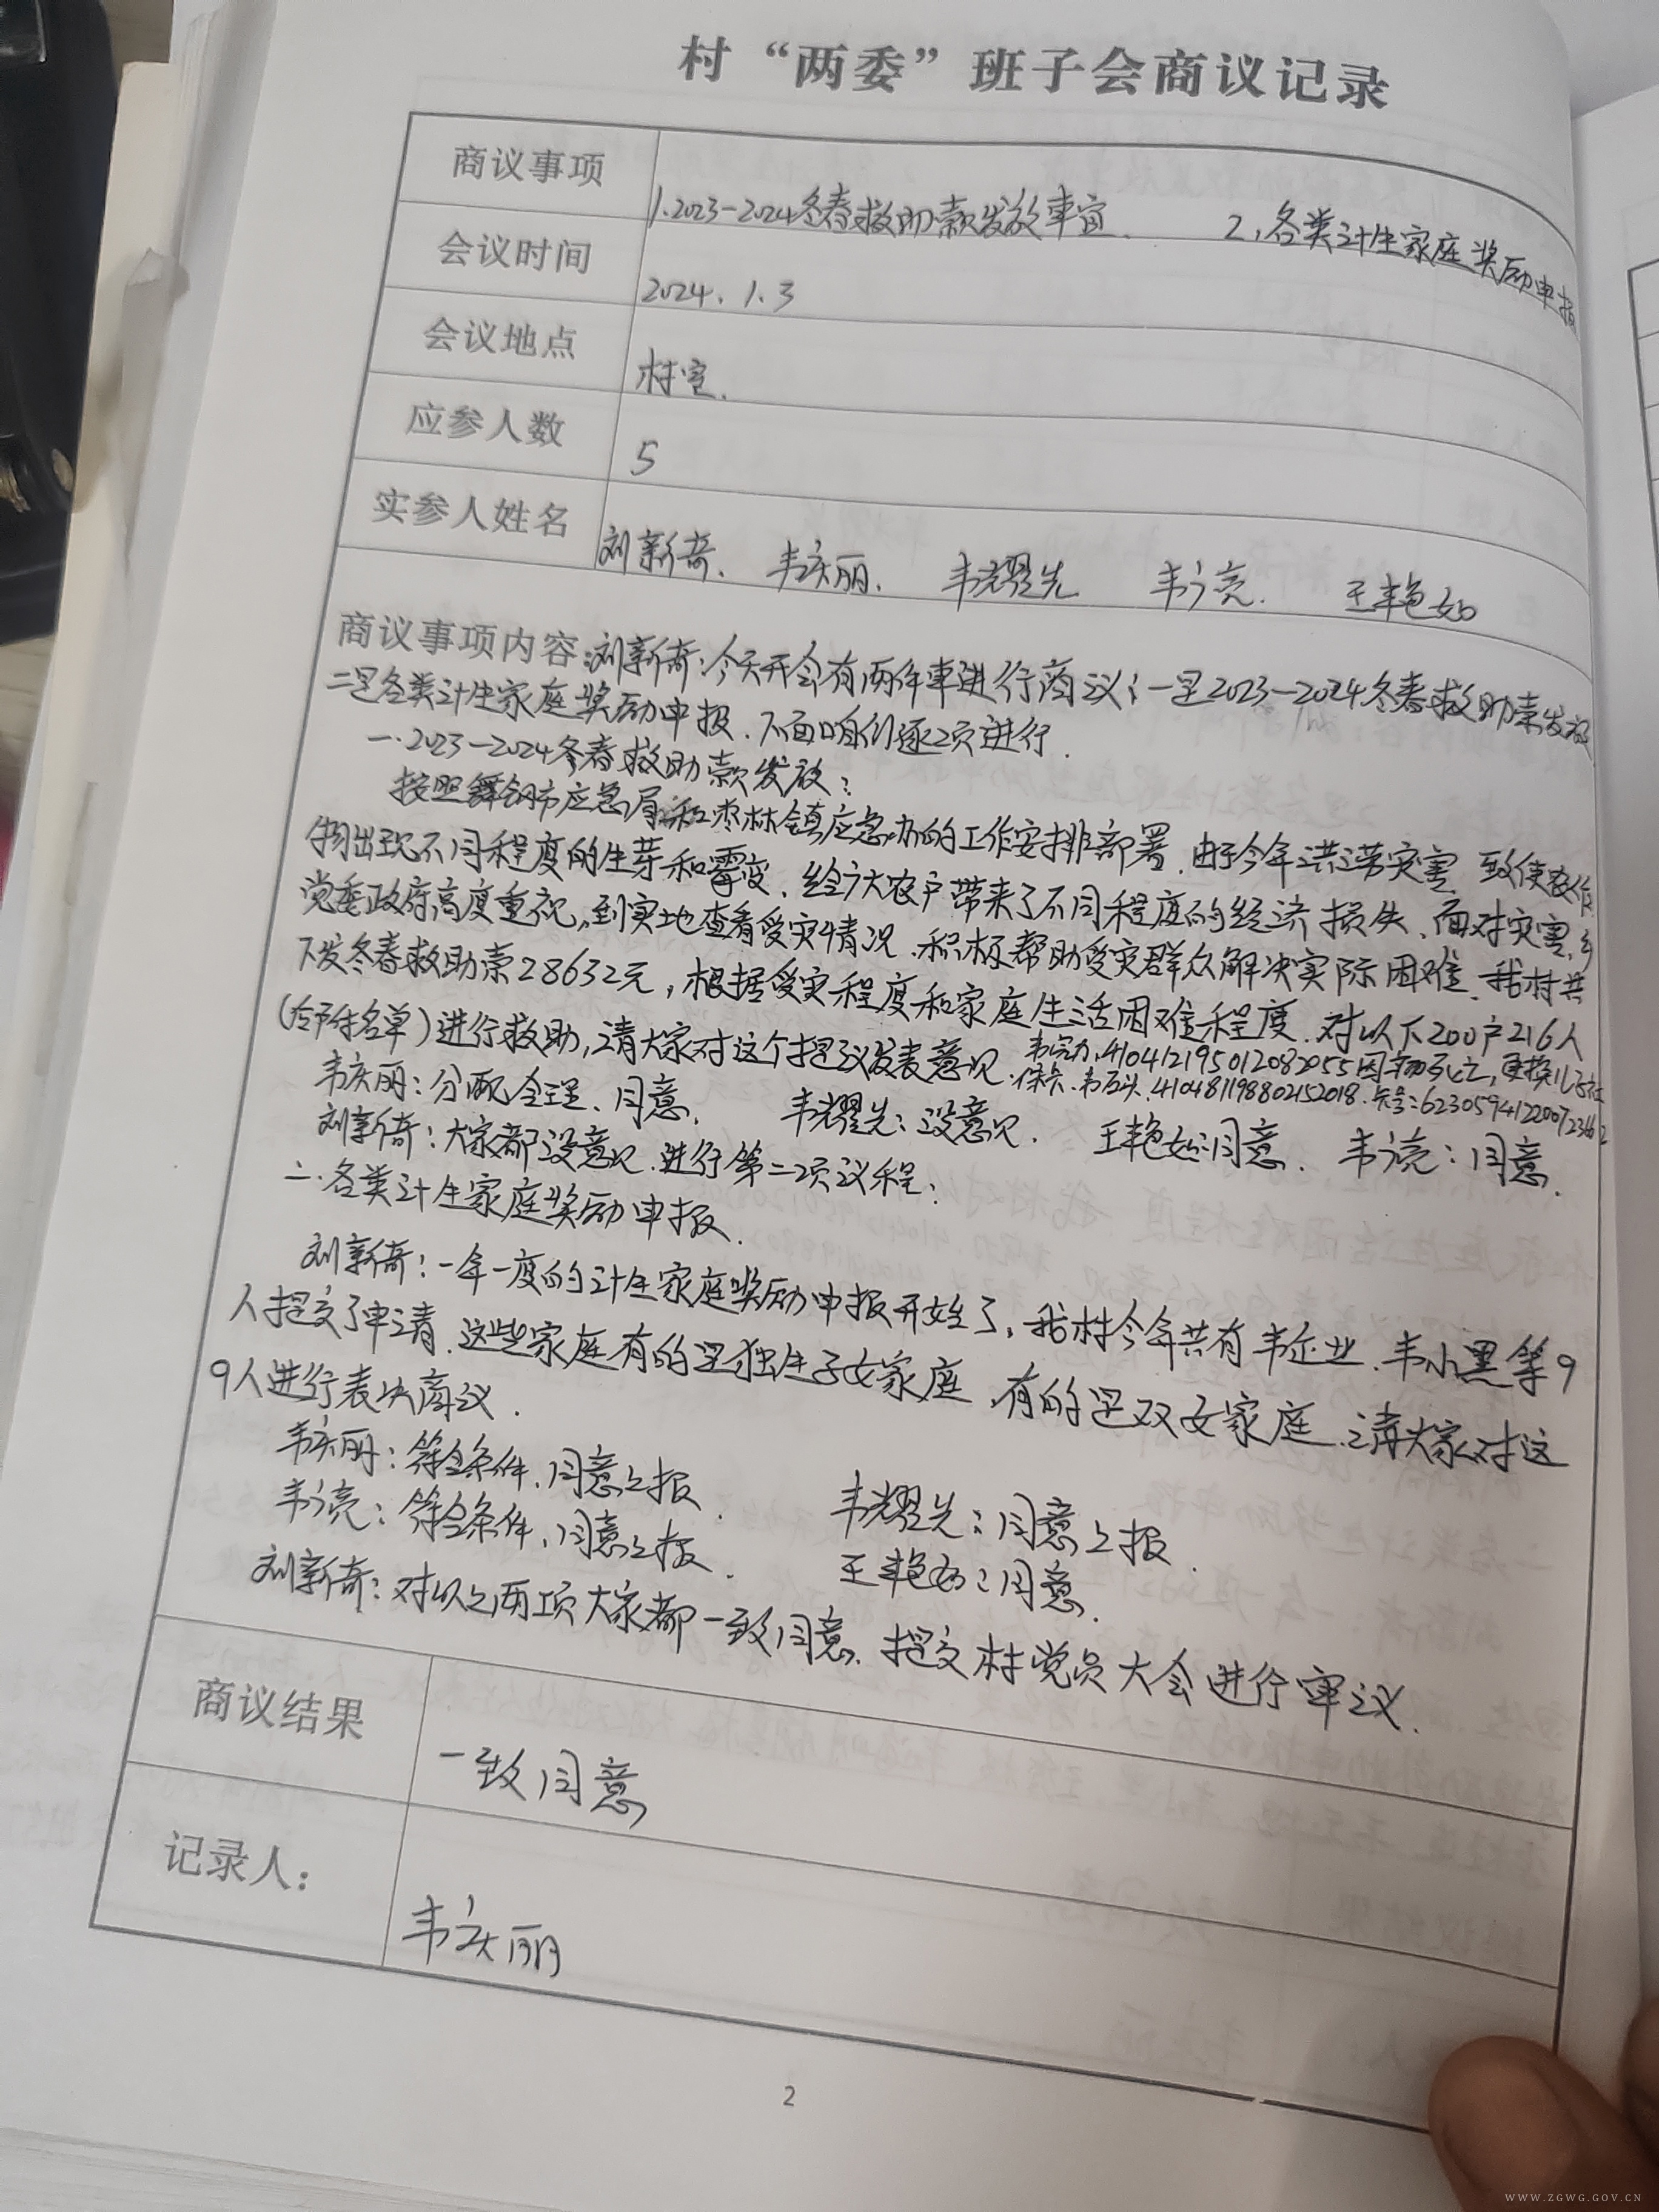 村“两委”班子会商议记录
商议事项
1.2023-2024冬春救助款发放事宜. 2、各类计生家庭奖励申报
会议时间
2024.1.3
会议地点
村室.
应参人数
5
实参人姓名
刘新奇、韦庆丽、韦耀先 韦广亮. 王艳如
商议事项内容:刘新奇:今天开会有两件事进行商议:一是2023-2024冬春救助款发放
二是各类计生家庭奖励申报.下面咱们逐项进行.
一.2023-2024冬春救助款发放:
按照舞钢市应急局和枣林镇应急办的工作安排部署.由于今年洪涝灾害 致使农作
物出现不同程度的生芽和霉变.给广大农户带来了不同程度的经济损失.面对灾害,乡
党委政府高度重视,到实地查看受灾情况.积极帮助受灾群众解决实际困难.我村共
下发冬春救助款28632元,根据受灾程度和家庭生活困难程度.对以下200户216人
(后附名单)进行救助,请大家对这个提议发表意见.
410412195012082055因病死亡,更换儿子社
保卡. 410481198802152018.卡号:623059412200723662
韦庆丽:分配合理、同意. 韦耀先:没意见. 王艳如:同意. 韦广亮:同意.
刘新奇:大家都没意见.进行第二项议程:
二.各类计生家庭奖励申报.
刘新奇:一年一度的计生家庭奖励申报开始了,我村今年共有韦企业.韦小黑等9
人提交了申请.这些家庭有的是独生子女家庭,有的是双女家庭.请大家对这
9人进行表决商议.
韦庆丽:符合条件.同意上报. 韦耀先:同意上报.
韦广亮:符合条件,同意上报. 王艳如:同意.
刘新奇:对以上两项大家都一致同意.提交村党员大会进行审议.
商议结果
一致同意
记录人:
韦庆丽
2
WWW.ZGWG.GOV.CN